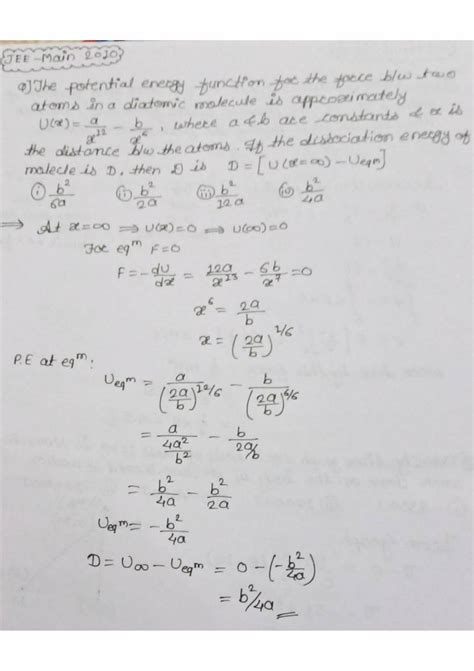 JEE-Main 2010
Q) The potential energy function for the force b/w two
atoms in a diatomic molecule is approximately
U(x) = a/x¹² - b/x⁶, where a & b are constants & x is
the distance b/w the atoms. If the dissociation energy of
molecle is D, then D is D = [U(x=∞) - Ueqᵐ]
(i) b²/6a (ii) b²/2a (iii) b²/12a (iv) b²/4a
⟹ At x=∞ ⟹ U(x)=0 ⟹ U(∞)=0
For eqᵐ F=0
F = -dU/dx = 12a/x¹³ - 6b/x⁷ = 0
x⁶ = 2a/b
x = (2a/b)^1/6
P.E at eqᵐ:
Ueqᵐ = a/(2a/b)^12/6 - b/(2a/b)^6/6
= a/(4a²/b²) - b/(2a/b)
= b²/4a - b²/2a
Ueqᵐ = -b²/4a
D = U∞ - Ueqᵐ = 0 - (-b²/4a)
= b²/4a